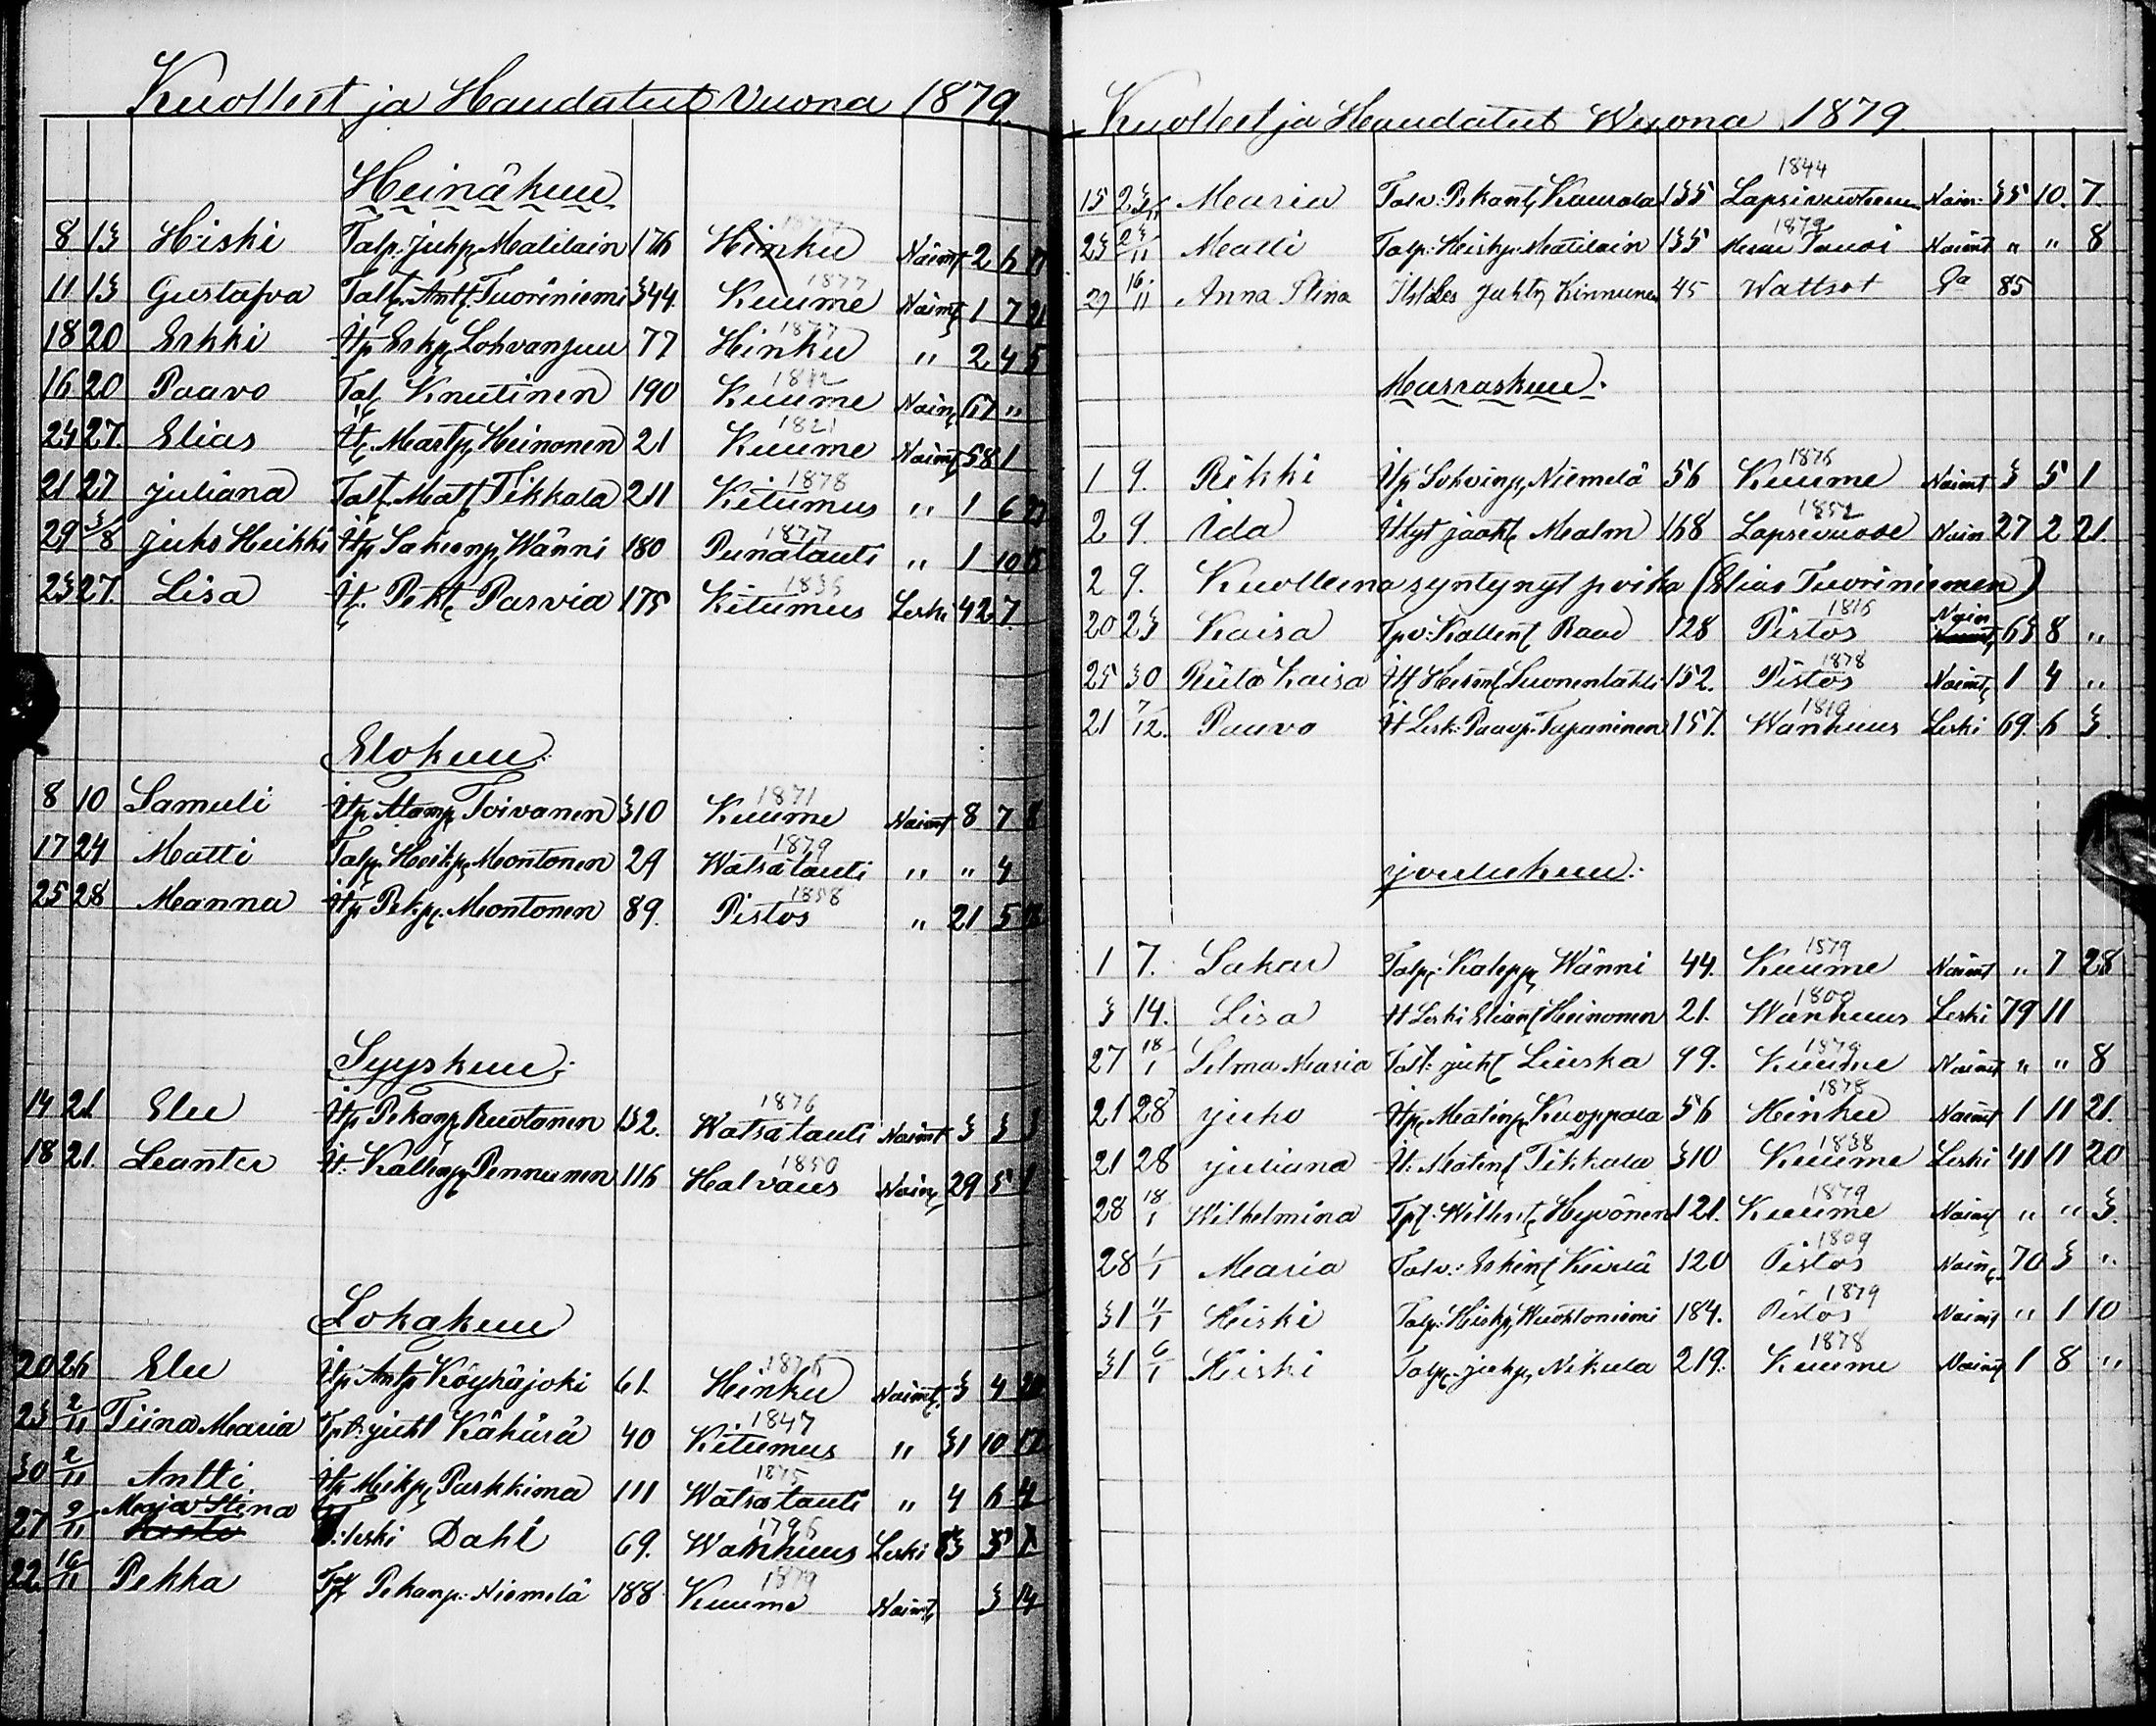 Kuolleet ja Haudatut Vuona 1879.
Heinäkuu
1877
8 13 Hiski Talp. Juhp. Matilain 176 Hinku Naimt 2 6 11
1877
11 13 Gustafva Talt. Antt. Tuoriniemi 344. Kuume Naimt 1 7 21
1877
18 20 Erkki Itp Erkp. Lohvanjuu 77 Hinku " 2 4 5
1812
16 20 Paavo Tal Knutinen 190 Kuume Nain 67 "
1821
24 27. Elias It. Martp. Heinonen 21 Kuume Naimt 58 1
1878
21 27 Juliana Talt. Matt. Tikkala 211 Kitumus " 1 6 23
1877
29 3/8 Juho Heikki Itp Sakarp. Wänni 180 Punatauti " 1 10 15
1836
23 27. Lisa It. Pekt. Parvia 175 Kitumus Leski 42 7.
Elokuu.
1871
8 10 Samuli Itp Atamp. Toivanen 310 Kuume Naimt 8 7 8
1879
17 24 Matti Talp. Heikp. Montonen 29 Watsatauti " " 4
1858
25 28 Manna Itp Pekp. Montonen 89. Pistos " 21 5
Syyskuu:
1876
14 21. Eeu Itp Pekanp. Ruotanen 132. Watsatauti Naimt 3 3 3
1850
18 21. Leanter It. Kallenp. Pennanen 116 Halvaus Nain. 29 5 1
Lokakuu
1876
20 26 Eeu Itp Antp Köyhäjoki 61. Hinku Naimt. 3 4 20
1847
23 2/11 Tiina Maria Tpt. Juht Kähärä 40 Kitumus " 31 10 12
1875
30 2/11 Antti Itp Heikp. Parkkima 111 Watsatauti " 4 6 4
1796
27 9/11 Maja Stina It. leski Dahl 69. Wanhuus Leski 83
1879
22. 16/11 Pekka Tp Pekanp. Niemelä 188 Kuume Naimt 3 14
Kuolleet ja Haudatut Wuona 1879.
1844
15 23/11 Maria Talv: Pekant. Kaurala 135 Lapsivuoteen Nain: 35 10. 7.
1879
23 23/11 Matti Talp: Heikp. Matilain 135 Muu Tauti Naimt " " 8
29 16/11 Anna Stina Itsl Les Juhtr. Kinnunen 45 Wattsat Da 85
Marraskuu.
1876
1 9. Rikki Itp Sohvinp. Niemelä 56 Kuume Naimt 3 5 1
1852
2 9. Ida Itlyt Jaakt. Malm 168 Lapsivuode Nain 27 2 21.
2 9. Kuolleena syntynyt poika (Elias Tuoriniemen)
1816
20 23 Kaisa Tpv: Kallent. Raad 128 Pistos Nain 63 8 "
1878
25 30 Riita Kaisa Itt Hermt. Suonenlahti 152. Pistos Naimt. 1 4 "
1810
21 7/12. Paavo It Lesk: Paavp. Tapaninen 157. Wanhuus Leski 69. 6 3.
Joulukuu:
1879
1 7. Sakar Talp: Kalepp. Wänni 44. Kuume Naimt " 7 28
1800
3 14. Lisa It Leski Eliant. Heinonen 21. Wanhuus Leski 79 11
1879
27 18/1 Selma Maria Talt: Juht Liuska 99. Kuume Naimt " " 8
1878
21 28 Juho Itp. Matinp. Kuoppala 56 Hinku Naimt 1 11 21.
1838
21 28 Juliana It. Matint. Tikkala 310 Kuume Leski 41 11 20
1879
28 18/1 Wilhelmina Tpt: Willert. Hyvönen 121. Kuume Naimt " " 3.
1809
28 1/1 Maria Talv: Erkint. Kiviä 120 Pistos Nain. 70 3 "
1879
31 11/1 Heiski Talp: Heikp. Wuohtoniemi 184. Pistos Naimt " 1 10
1878
31 6/1 Hiski Talp. Juhp. Nikula 219. Kuume Naimt 1 8 "